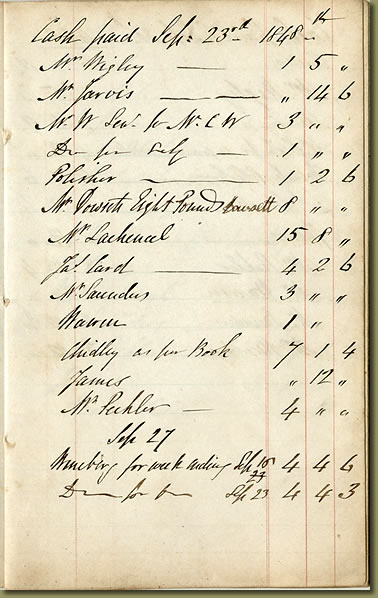 Cash paid Sep: 23rd 1848
Mr Wigley — 1 5 "
Mr Jarvis — — " 14 6
Mr W for Mr C W 3 " "
Do for Self — 1 " "
Polisher — 1 2 6
Mr Dowsett Eight Pounds Dowsett 8 " "
Mr Lachenal 15 8 "
Jas. Card — 4 2 6
Mr Saunders 3 " "
Warren 1 "
Chidley as per Book 7 1 4
James " 12 "
Mr Pichler — 4 " "
Sep 27
for week ending Sep 16 4 4 6
23
Do for Sep 23 4 4 3